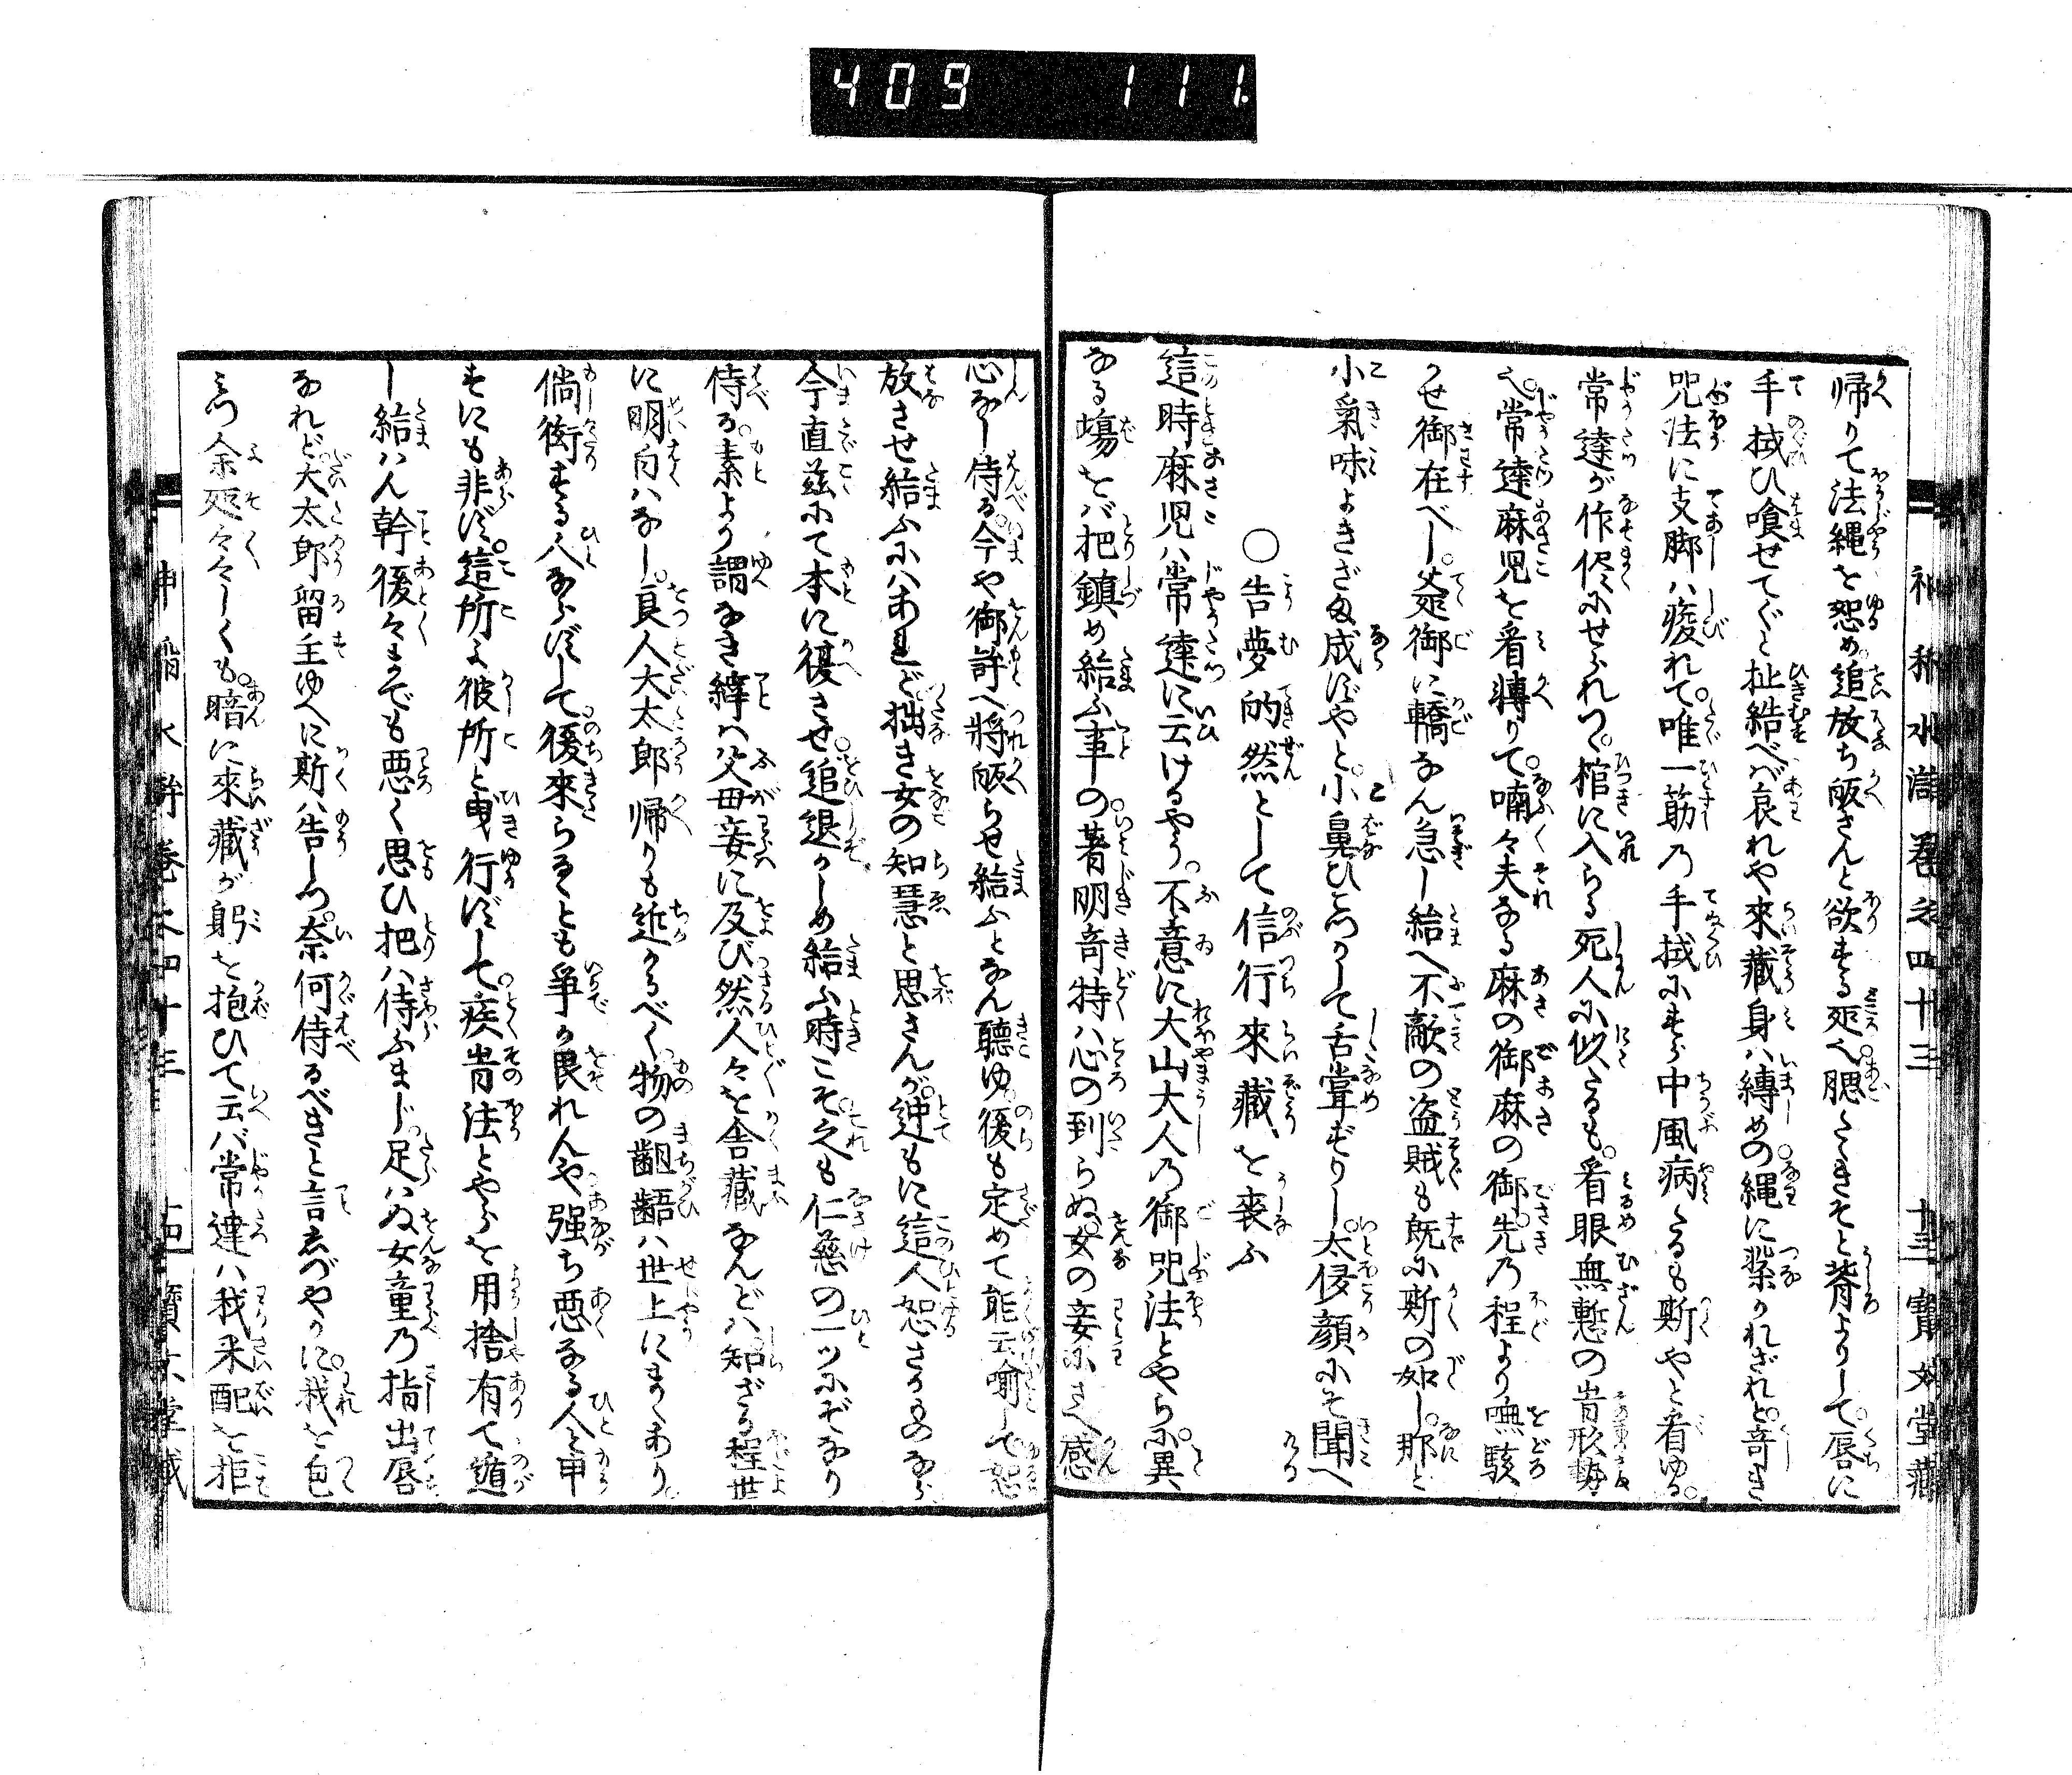 409 111
神稲水滸傳巻之四十三 十三 寶文堂藏
帰りて法縄を恕め追放ち皈さんと欲する
手拭ひ喰せてぐと扯結べバ哀れや來藏身ハ縛めの縄に縈がれざれど奇き
咒法に支脚ハ痠れて。唯一筋乃手拭にすら中風病たるも斯やと看ゆる。
常達が作俤にせられつ。棺に入らる死人に似たるも。看眼無慙の光形勢
常達麻児を看轉りて。喃々夫なる麻の御麻の御先乃程より嘸駭
かせ御在べし。爺御に轎なん急し給へ不敵の盗賊も既に斯の如し。那と
小氣味よきざま成ずやと。小鼻ひこつかして舌嘗ずりし。太侵顔にぞ聞へ
○告夢的然として信行來藏を喪ふ
這時麻児ハ常達に云けるやう。不意に大山大人乃御咒法とやらに。異
なる塲をバ把鎮め給ふ事の。著明奇特ハ心の到らぬ。女の妾にさへ感
心なし侍る。今や御許へ將皈らせ給ふとなん聽ゆ。後も定めて能云喻して恕
放させ給ふにハあれど拙き女の知慧と思さんが。迚もに這人恕さるゝものなら
今直茲にて本に復させ。追退かしめ給ふ時こそ。之も仁慈の一ツにぞなり
侍る。素より謂なき縡ハ父母妾に及び然人々を舎藏なんどハ知ざる程世
に明白ハなし。良人大太郎帰りも近かるべく。物の齟齬ハ世上にまゝあり。
倘銜する人ならずして後來らるゝとも爭か畏れんや強ち悪なる人と甲
すにも非ず。這所よ彼所と曵行ずして。疾肯法とやらを用捨有て遁
し給ハん幹後々までも悪く思ひ把ハ侍ふまじ。足ハぬ女童乃指出唇
なれど。大太郎留主ゆへに斯ハ告しつ。奈何侍るべきと言ゑづやかに。我を色
みつ余処々々しくも。暗に來藏が躬を抱ひて云バ常達ハ我采配を拒
神稲水滸傳巻之四十三 十四 寶文堂藏